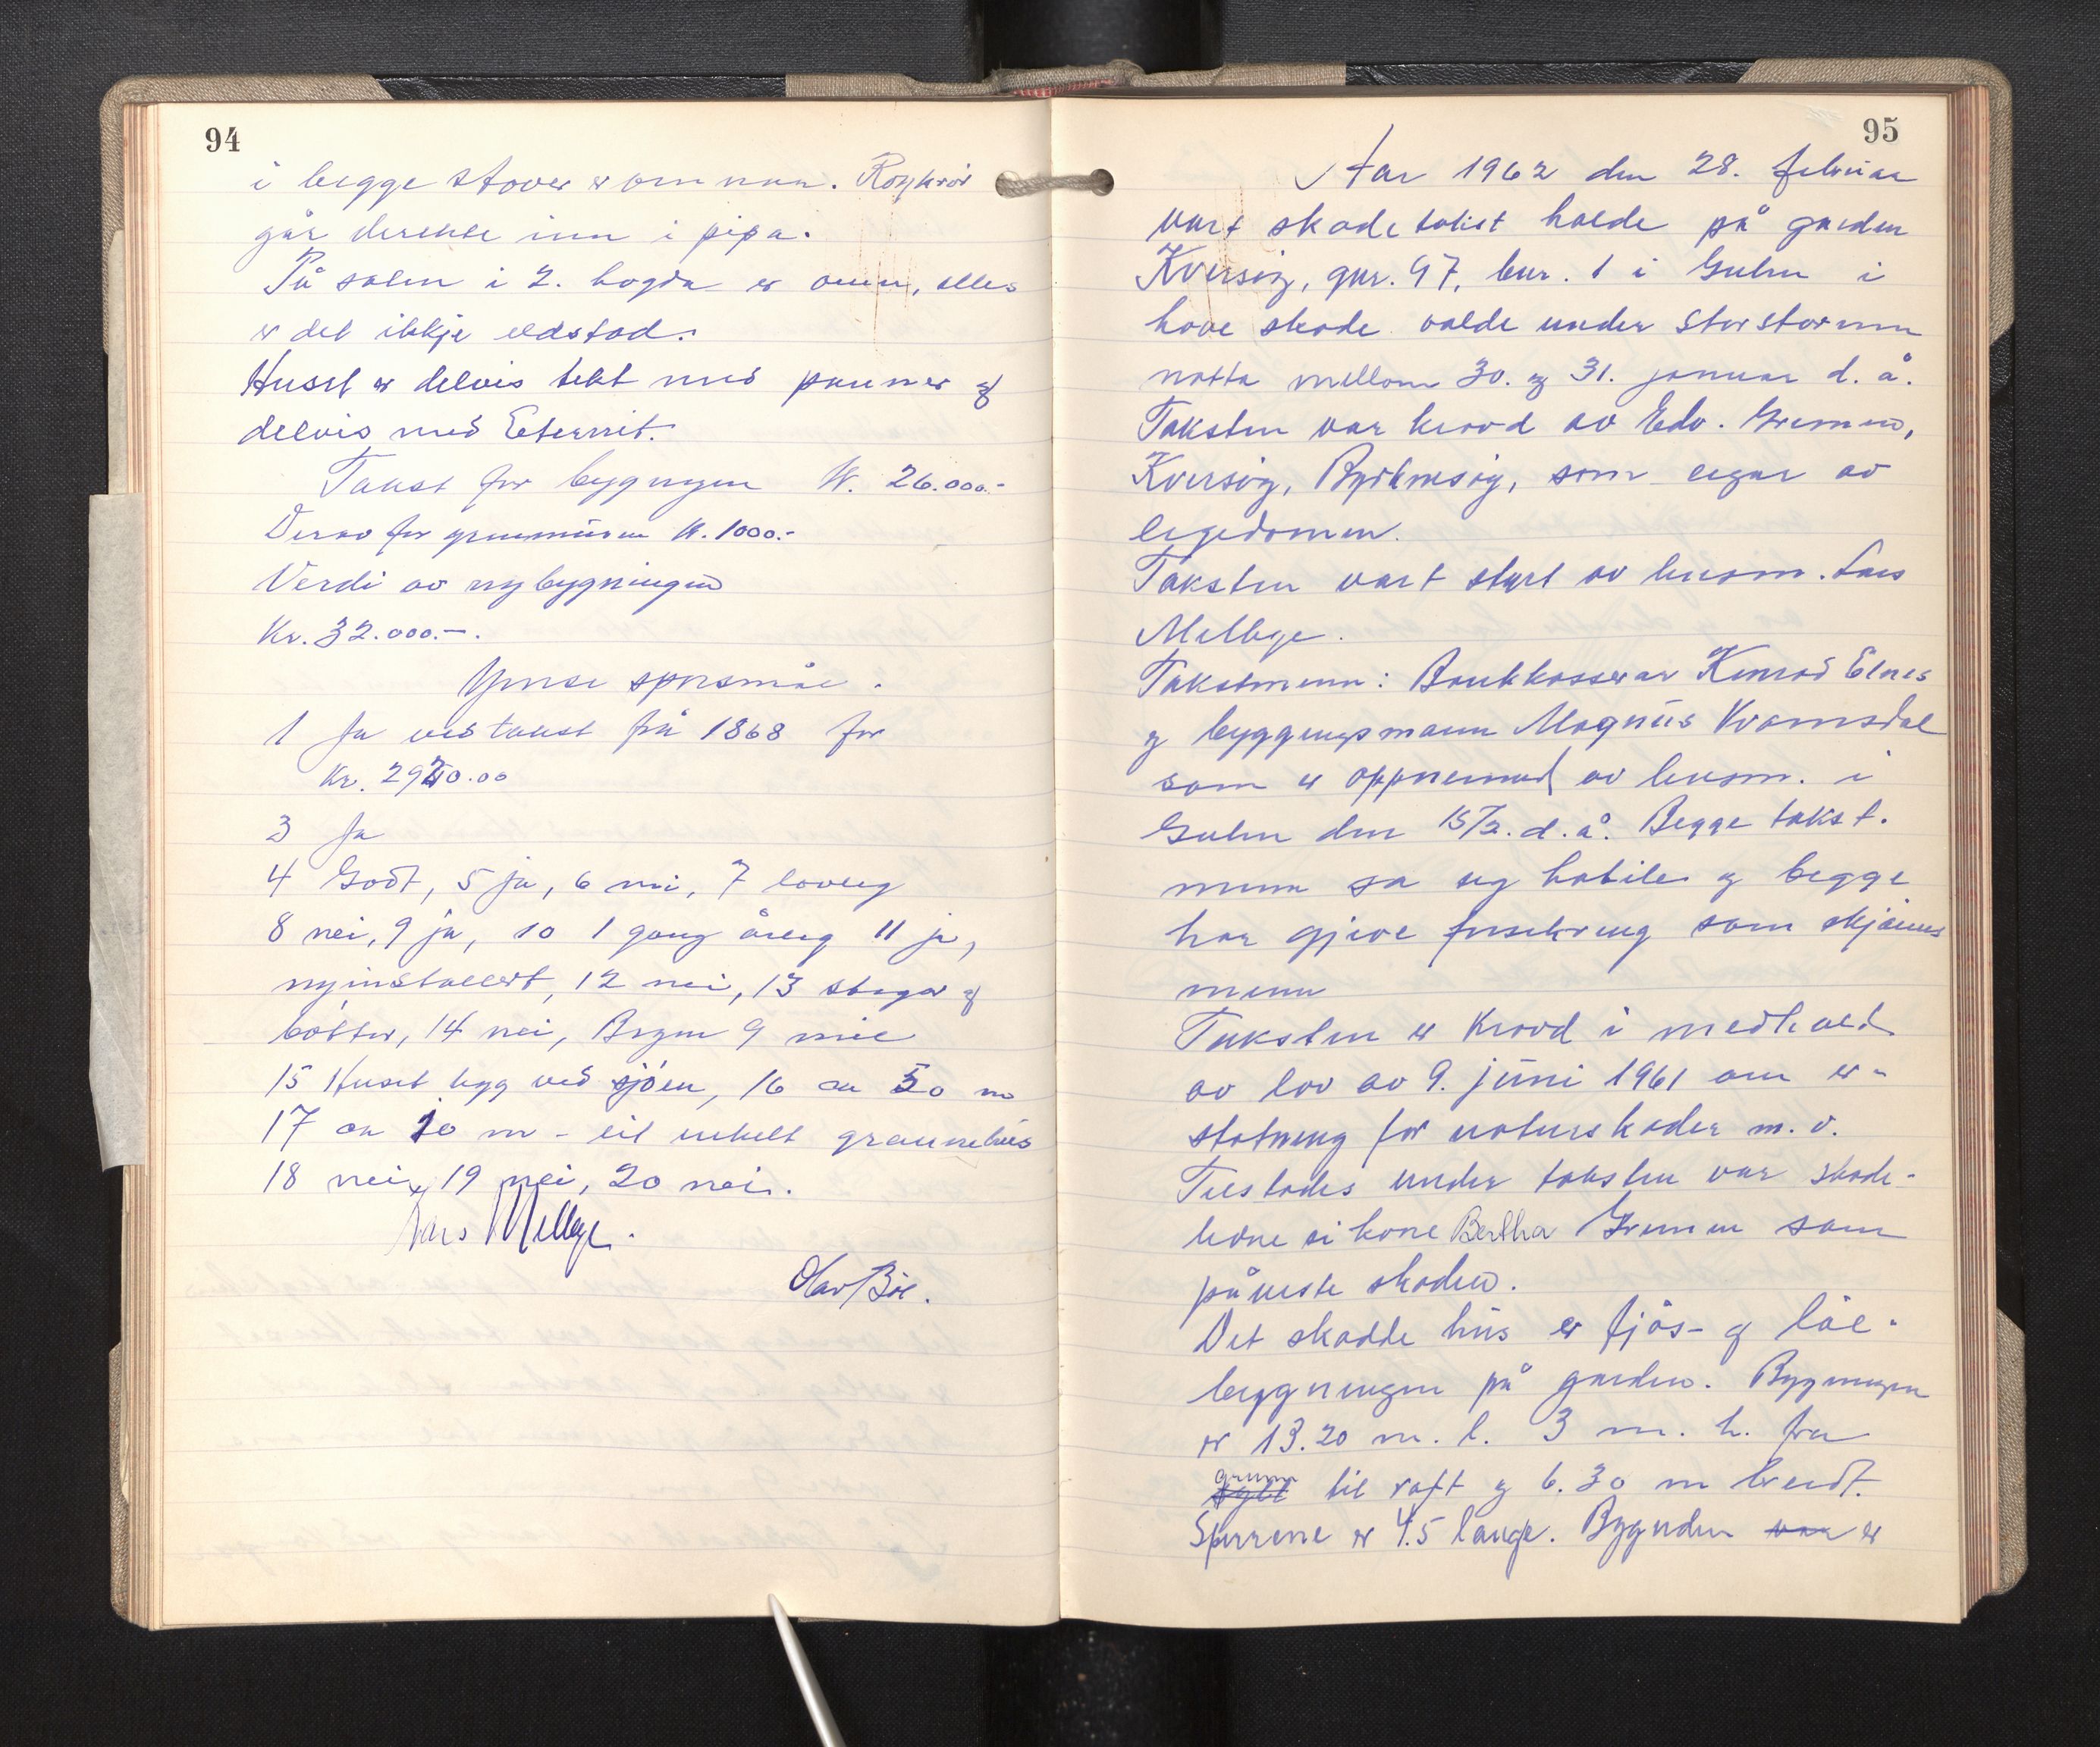 94
i begge stover er omnar. Røykrør
går direkte inn i pipa.
På salen i 2. høgda er omn, elles
er det ikkje eldstad.
Huset er delvis tekt med panner og
delvis med Eternit.
Takst for bygningen kr. 26.000.-
Derav for grunnmuren kr. 1000.-
Verdi av nybygningen
Kr. 32.000.-.
Ymse spursmål.
1 Ja ved takst frå 1868 for
Kr. 2920.00
3 Ja
4 Godt, 5 ja, 6 nei, 7 lovleg
8 nei, 9 ja, 10 1 gong årleg 11 ja,
nyinstallert, 12 nei, 13 stigar og
bøtter, 14 nei, Brgm 9 mil
15 Huset ligg ved sjøen, 16 ca 50 m
17 ca 10 m - eit enkelt grannehus
18 nei, 19 nei, 20 nei.
Lars Mellbye.
Olav Bøe.
95
Aar 1962 den 28. februar
vart skadetakst halde på garden
Kversøy, gnr. 97, bnr. 1 i Gulen i
høve skade valde under storstormen
natta mellom 30. og 31. januar d. å.
Taksten var kravd av Edv. Grimen,
Kversøy, Byrknesøy, som eigar av
eigedomen.
Taksten vart styrt av lensm. Lars
Mellbye.
Takstmenn: Bankkasserar Konrad Elnes
og bygningsmann Magnus Kvamsdal
som er oppnemnd av lensm. i
Gulen den 15/2. d. å. Begge takst-
menn sa seg habile og begge
har gjeve forsikring som skjøns
menn
Taksten er kravd i medhald
av lov av 9. juni 1961 om er-
statning for naturskader m. v.
Tilstades under taksten var skade-
lidne si kone Bertha Grimen som
påviste skaden.
Det skadde hus er fjøs- og løe-
bygningen på garden. Bygningen
er 13.20 m. l. 3 m. h. fra
grunn
sylt til raft og 6.30 m breidt.
Sperrene er 4.5 lange. Bygnden var er